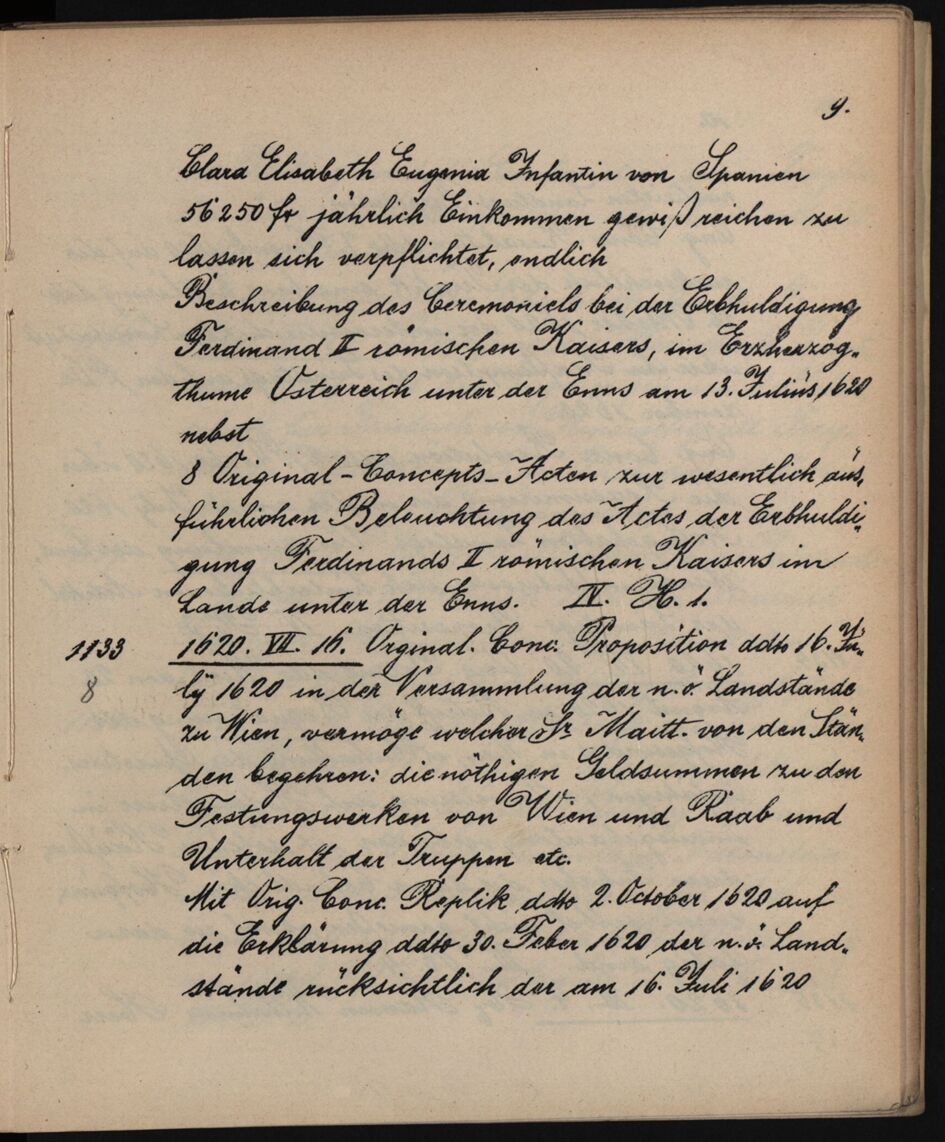 9.
Clara Elisabeth Eugenia Infantin von Spanien
56250 fr jährlich Einkommen gewiß reichen zu
lassen sich verpflichtet, endlich
Beschreibung des Ceremoniels bei der Erbhuldigung
Ferdinand II römischen Kaisers, im Erzherzog„
thume Österreich unter der Enns am 13. Julius 1620
nebst
8 Original-Concepts-Acten zur wesentlich aus„
führlichen Beleuchtung des Actes der Erbhuldi„
gung Ferdinands II römischen Kaisers im
Lande unter der Enns. IV. H. 1.
1133 1620. VII. 16. Orginal. Conc. Proposition ddto 16. Ju„
8 ly 1620 in der Versammlung der n. ö. Landstände
zu Wien, vermöge welcher Sr Maitt. von den Stän„
den begehren: die nöthigen Geldsummen zu den
Festungswerken von Wien und Raab und
Unterhalt der Truppen etc.
Mit Orig. Conc. Replik ddto 2. October 1620 auf
die Erklärung ddto 30. Feber 1620 der n. ö. Land„
stände rücksichtlich der am 16. Juli 1620